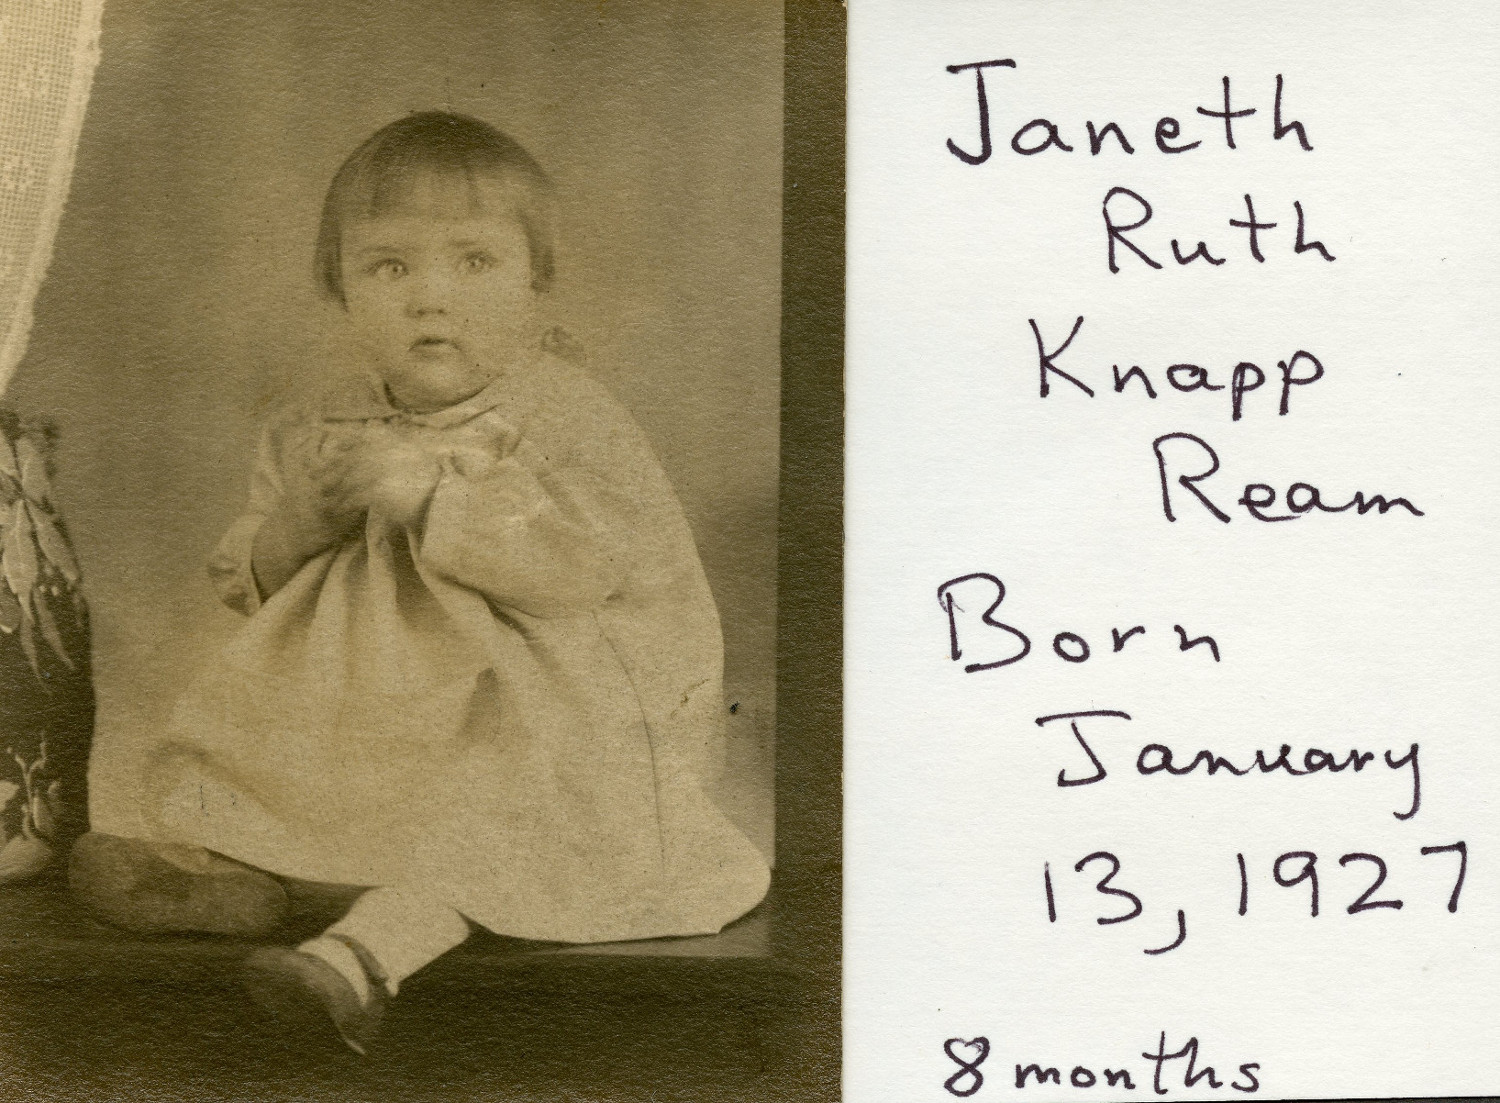 Janeth
Ruth
Knapp
Ream
Born
January
13, 1927
8 months